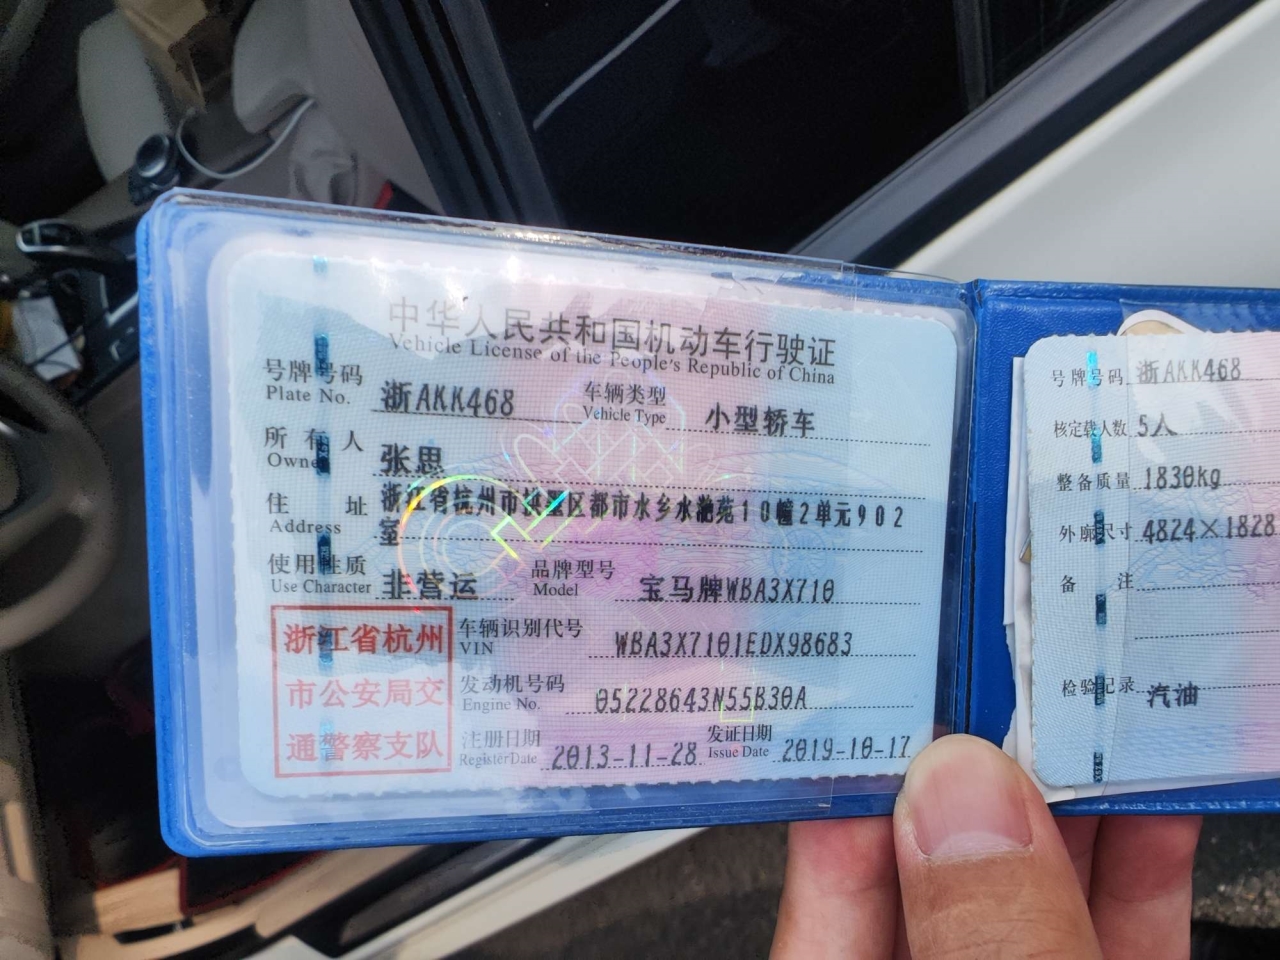 中华人民共和国机动车行驶证
Vehicle License of the People's Republic of China
号牌号码 浙AKK468 车辆类型 小型轿车
Plate No. Vehicle Type
所有人 张思
Owner
住址 浙江省杭州市 区都市水乡水 苑10幢2单元902
Address 室
使用性质 非营运 品牌型号 宝马牌WBA3X710
Use Character Model
浙江省杭州
市公安局交
通警察支队
车辆识别代号 WBA3X7101EDX98683
VIN
发动机号码 05228643N55B30A
Engine No.
注册日期 2013-11-28 发证日期 2019-10-17
Register Date Issue Date
号牌号码 浙AKK468
核定载人数 5人
整备质量 1830kg
外廓尺寸 4824×1828
备注
检验记录 汽油